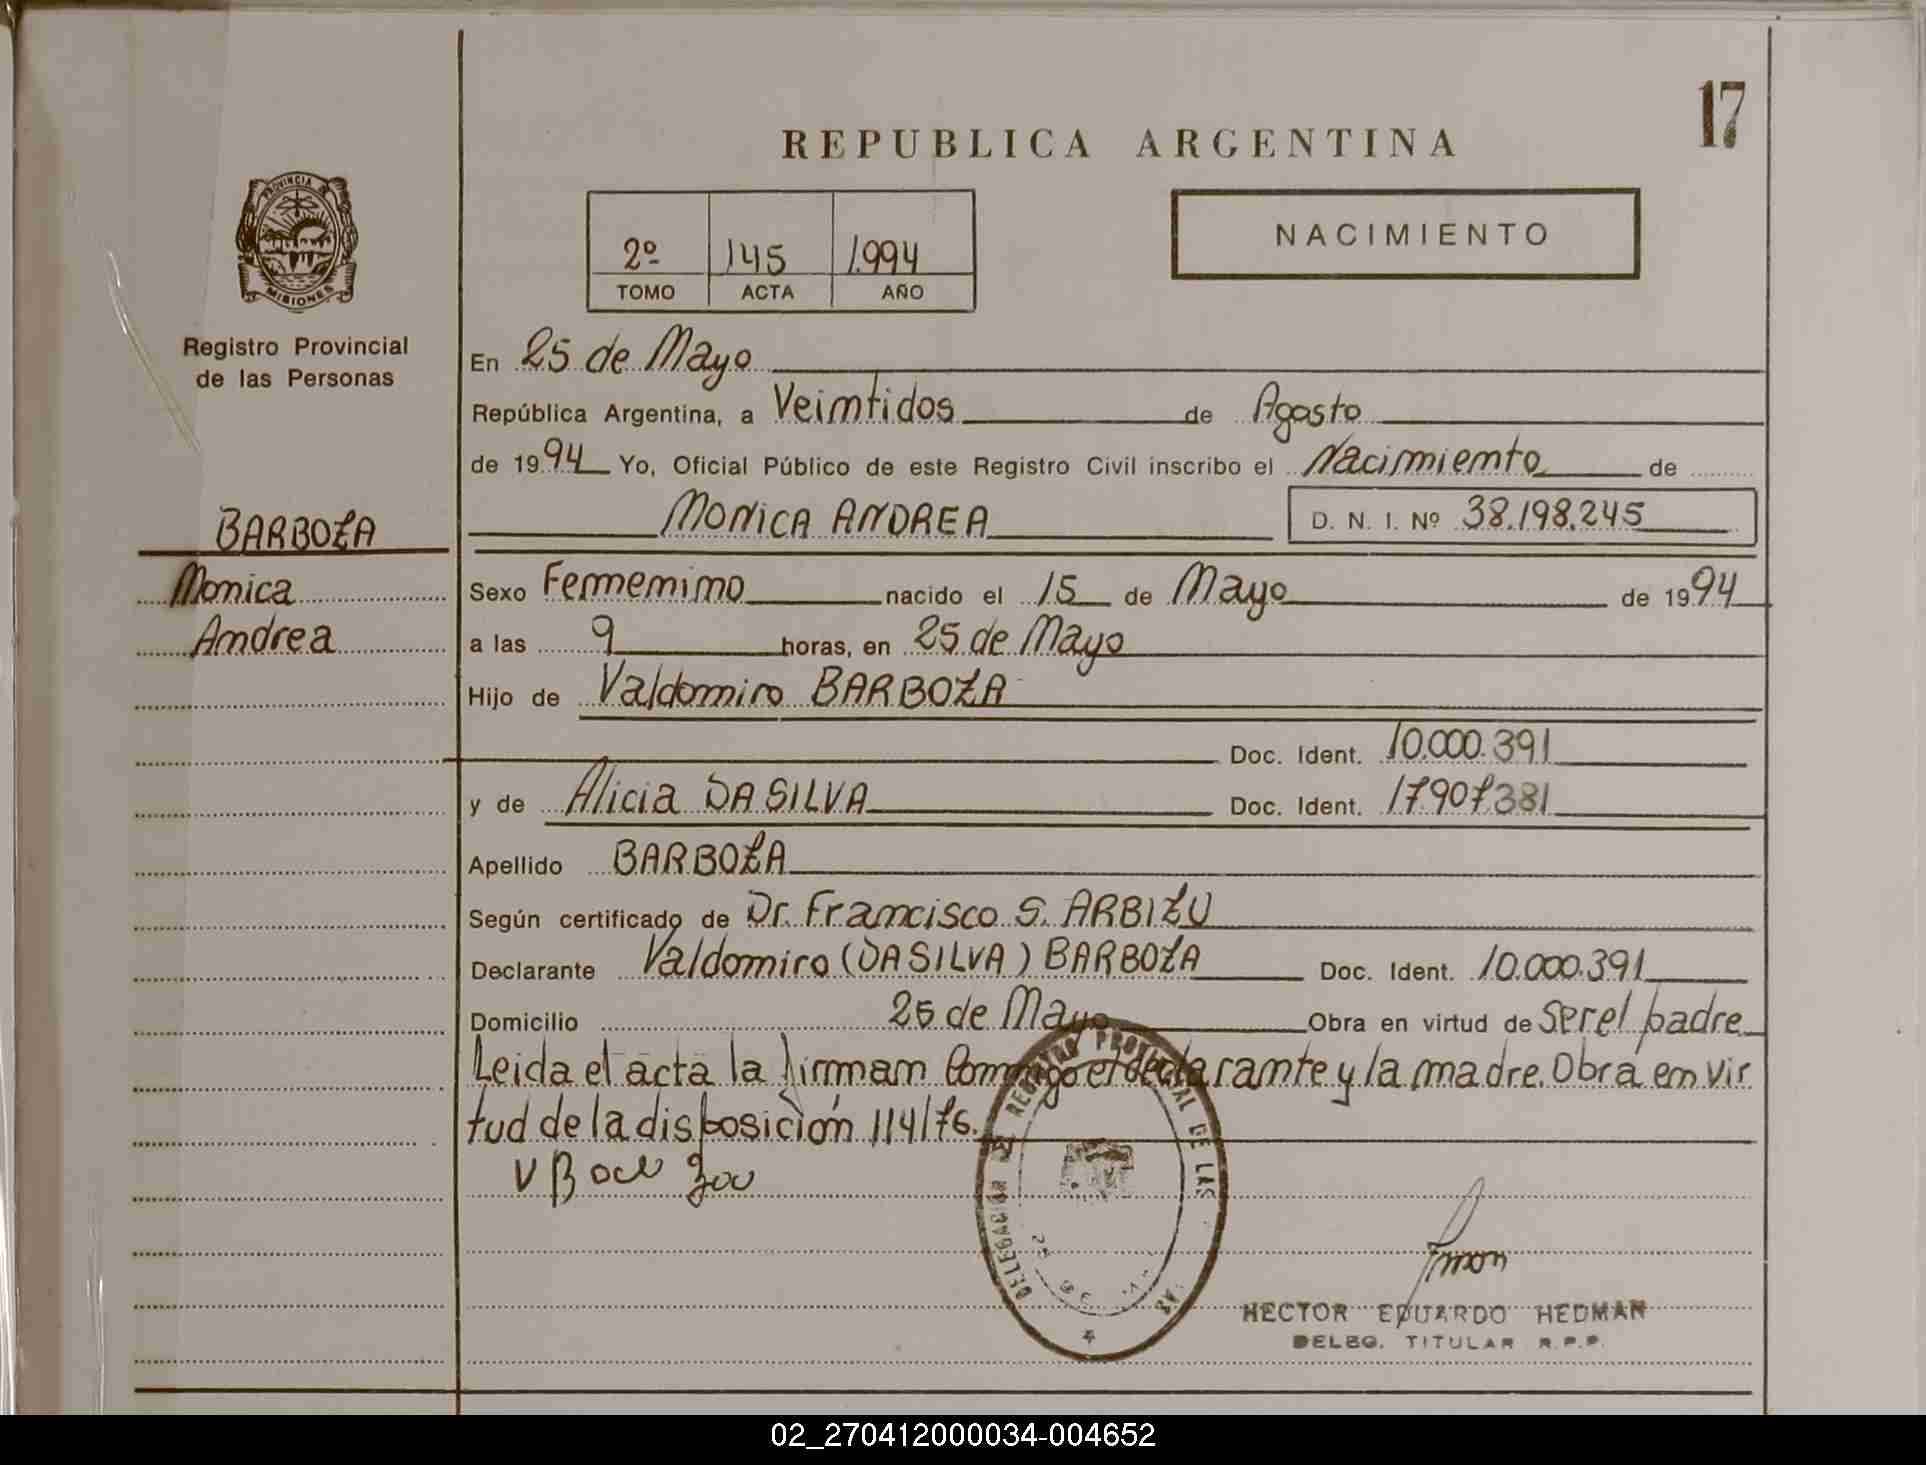 17
REPUBLICA ARGENTINA
PROVINCIA DE
MISIONES
Registro Provincial
de las Personas
2º 145 1.994
TOMO ACTA AÑO
NACIMIENTO
En 25 de Mayo
República Argentina, a Veintidos de Agosto
de 1994 Yo, Oficial Público de este Registro Civil inscribo el Nacimiento de
BARBOZA
MONICA ANDREA D. N. I. Nº 38.198.245
Monica
Sexo Femenino nacido el 15 de Mayo de 1994
Andrea
a las 9 horas, en 25 de Mayo
Hijo de Valdomiro BARBOZA
Doc. Ident. 10.000.391
y de Alicia DA SILVA Doc. Ident. 17907381
Apellido BARBOZA
Según certificado de Dr. Francisco S. ARBIZU
Declarante Valdomiro (DA SILVA) BARBOZA Doc. Ident. 10.000.391
Domicilio 25 de Mayo Obra en virtud de Ser el padre
Leida el acta la firman Conmigo el declarante y la madre. Obra en vir
tud de la disposición 114/76.
DELEGACIÓN DEL REGISTRO PROVINCIAL DE LAS
HECTOR EDUARDO HEDMAN
DELEG. TITULAR R.P.P.
02_270412000034-004652